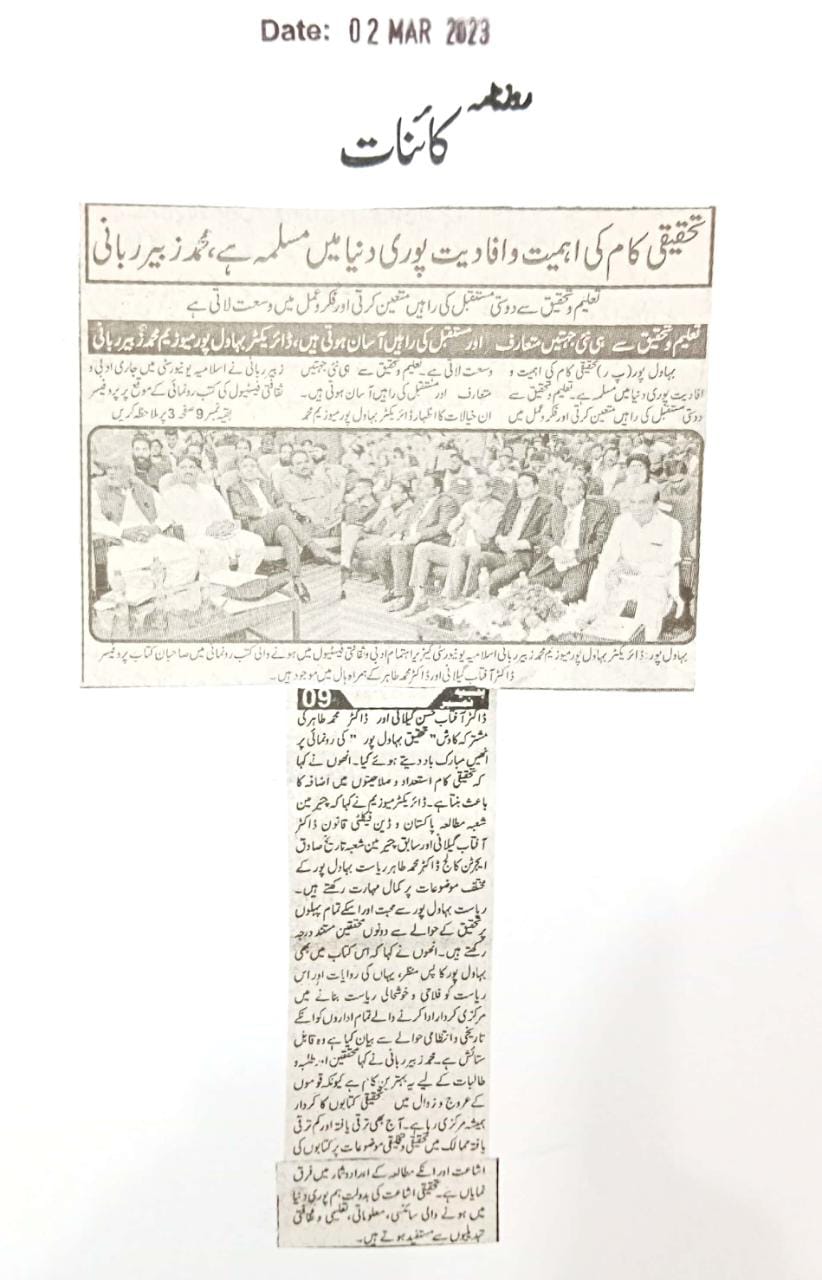 Date: 02 MAR 2023
روزنامہ
کائنات
تحقیقی کام کی اہمیت و افادیت پوری دنیا میں مسلمہ ہے، محمد زبیر ربانی
تعلیم و تحقیق سے دوستی مستقبل کی راہیں متعین کرتی اور فکر و عمل میں وسعت لاتی ہے
تعلیم و تحقیق سے ہی نئی جہتیں متعارف اور مستقبل کی راہیں آسان ہوتی ہیں، ڈائریکٹر بہاول پور میوزیم محمد زبیر ربانی
بہاول پور (پ ر) تحقیقی کام کی اہمیت و
افادیت پوری دنیا میں مسلمہ ہے۔ تعلیم و تحقیق سے
دوستی مستقبل کی راہیں متعین کرتی اور فکر و عمل میں
وسعت لاتی ہے۔ تعلیم و تحقیق سے ہی نئی جہتیں
متعارف اور مستقبل کی راہیں آسان ہوتی ہیں۔
ان خیالات کا اظہار ڈائریکٹر بہاول پور میوزیم محمد
زبیر ربانی نے اسلامیہ یونیورسٹی میں جاری ادبی و
ثقافتی فیسٹیول کی کتب رونمائی کے موقع پر پروفیسر
بقیہ نمبر 9 صفحہ 3 پر ملاحظہ کریں
بہاول پور: ڈائریکٹر بہاول پور میوزیم محمد زبیر ربانی اسلامیہ یونیورسٹی کے زیر اہتمام ادبی و ثقافتی فیسٹیول میں ہونے والی کتب رونمائی میں صاحبان کتاب پروفیسر
ڈاکٹر آفتاب گیلانی اور ڈاکٹر محمد طاہر کے ہمراہ ہال میں موجود ہیں۔
بقیہ نمبر 09
ڈاکٹر آفتاب حسن گیلانی اور ڈاکٹر محمد طاہر کی
مشترکہ کاوش "تحقیق بہاول پور" کی رونمائی پر
انھیں مبارک باد دیتے ہوئے کیا۔ انھوں نے کہا
کہ تحقیقی کام استعداد و صلاحیتوں میں اضافہ کا
باعث بنتا ہے۔ ڈائریکٹر میوزیم نے کہا کہ چئیرمین
شعبہ مطالعہ پاکستان و ڈین فیکلٹی قانون ڈاکٹر
آفتاب گیلانی اور سابق چئیرمین شعبہ تاریخ صادق
ایجرٹن کالج ڈاکٹر محمد طاہر ریاست بہاول پور کے
مختلف موضوعات پر کمال مہارت رکھتے ہیں۔
ریاست بہاول پور سے محبت اور اسکے تمام پہلوں
پر تحقیق کے حوالے سے دونوں محققین مستند درجہ
رکھتے ہیں۔ انھوں نے کہا کہ اس کتاب میں بھی
بہاول پور کا پس منظر، یہاں کی روایات اور اس
ریاست کو فلاحی و خوشحالی ریاست بنانے میں
مرکزی کردار ادا کرنے والے تمام اداروں کو انکے
تاریخی و انتظامی حوالے سے بیان کیا ہے وہ قابل
ستائش ہے۔ محمد زبیر ربانی نے کہا محققین اور طلبہ و
طالبات کے لیے یہ بہترین کام ہے کیونکہ قوموں
کے عروج و زوال میں تحقیقی کتابوں کا کردار
ہمیشہ مرکزی رہا ہے۔ آج بھی ترقی یافتہ اور کم ترقی
یافتہ ممالک میں تحقیقی و تخلیقی موضوعات پر کتابوں کی
اشاعت اور انکے مطالعہ کے اعداد و شمار میں فرق
نمایاں ہے۔ تحقیقی اشاعت کی بدولت ہم پوری دنیا
میں ہونے والی سائنسی، معلوماتی، تعلیمی و ثقافتی
تبدیلیوں سے مستفید ہوتے ہیں۔